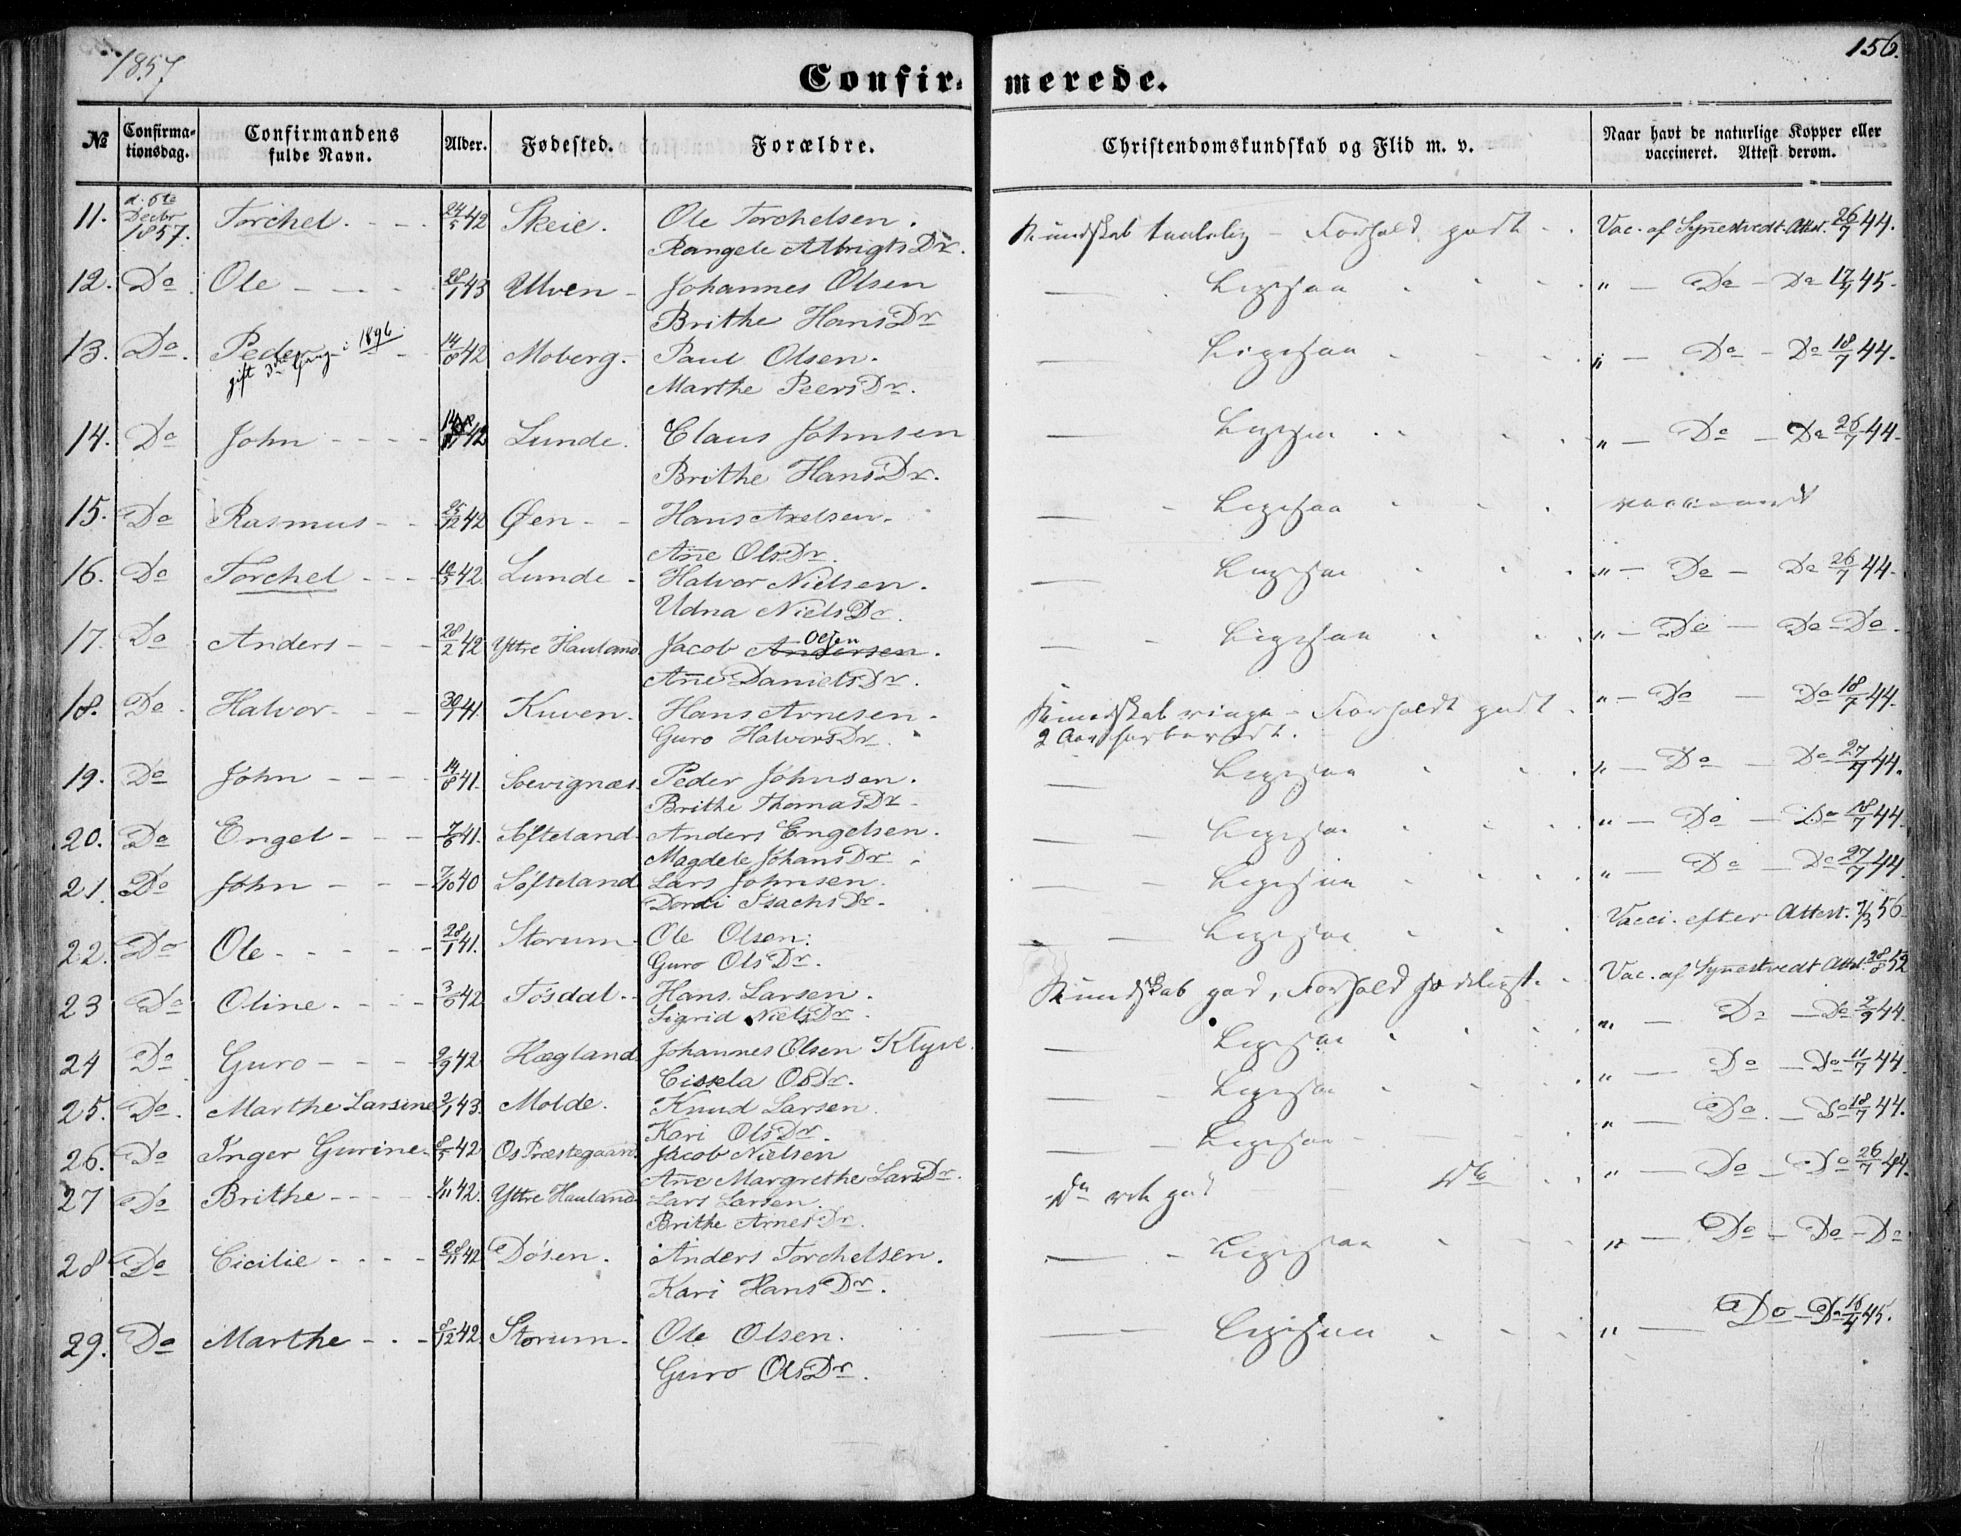 1857
156.
Confir= merede.
№ Confirma-tionsdag. Confirmandens fulde Navn. Alder. Fødested. Forældre. Christendomskundskab og Flid m. v. Naar havt de naturlige Kopper eller vaccineret. Attest derom.
11. d. 6te Decbr 1857. Torchel. 24/5 42 Skeie. Ole Torchelsen. Kundskab taalelig - Forhold godt Vac. af Synestvedt Attst. 26/7 44.
Rangele Albrigts Dr.
12. Do Ole 28/1 43 Ulven Johannes Olsen Ligesaa " Do Do 17/9 45.
Brithe Hans Dr
13. Do. Peder 14/8 42 Moberg. Paul Olsen. Ligesaa " Do Do 18/7 44.
gift 3die Gang i 1896 Marthe Peers Dr.
14. Do John 42 Lunde. Claus Johnsen Ligesaa " Do Do 26/7 44.
Brithe Hans Dr.
15. Do Rasmus 25/12 42 Øen Hans Axelsen. Ligesaa
Ane Ols Dr.
16. Do Torchel 42 Lunde Halvor Nielsen. Ligesaa " Do Do 26/7 44.
Udna Niels Dr.
17. Do Anders 28/2 42 Yttre Hauland Jacob Andersen Olsen. Ligesaa " Do Do Do.
Ane Daniels Dr.
18. Do Halvor 41. Kuven. Hans Arnesen. Kundskab ringe - Forholdt godt " Do Do 18/7 44.
Guro Halvors Dr. 2 Aar forberedt.
19. Do John 14/8 41. Soevignæs Peder Johnsen. Ligesaa " Do Do 27/7 44.
Brithe Thomas Dr
20. Do Engel 7/8 41. Softeland Anders Engelsen. Ligesaa " Do Do 18/7 44.
Magdele Johans Dr
21. Do John 7/10 40 Softeland Lars Johnsen. Ligesaa " Do Do 27/7 44.
Dordi Isachs Dr.
22. Do Ole 28/1 41. Storum Ole Olsen. Ligesaa Vacci. efter Attest. 7/3 56
Guro Ols Dr.
23 Do Oline 3/6 42 Tøsdal. Hans Larsen. Kundskab god, Forhold sædeligt. Vac. af Synestvedt Attst. 28/8 52
Sigrid Niels Dr.
24 Do Guro 2/9 42 Hægland Johannes Olsen Klyve. Ligesaa " Do Do 2/9 44
Cissela Ols Dr.
25. Do. Marthe Larsine 2/1 43. Molde. Knud Larsen. Ligesaa " Do Do 11/7 44.
Kari Ols Dr.
26. Do Inger Gurine 42 Os Præstegaard. Jacob Nielsen Ligesaa " Do Do 18/7 44.
Ane Margrethe Lars Dr.
27 Do Brithe 42. Yttre Hauland Lars Larsen. Do god Do " Do Do 26/7 44.
Brithe Arnes Dr.
28 Do Cicilie 28/11 42 Døsen. Anders Torchelsen. Ligesaa " Do Do Do
Kari Hans Dr.
29. Do Marthe 8/12 42 Storum Ole Olsen. Ligesaa " Do Do 45.
Guro Ols Dr.